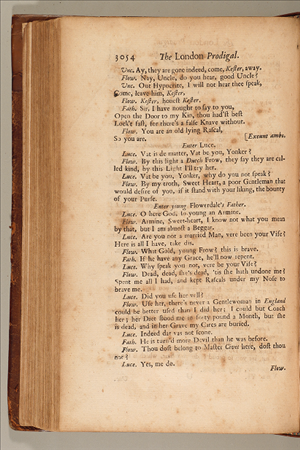 3054 The London Prodigal.
Unc. Ay, they are gone indeed, come, Kester, away.
Flow. Nay, Uncle, do you hear, good Uncle?
Unc. Out Hypocrite, I will not hear thee speak,
Come, leave him, Kester.
Flow. Kester, honest Kester.
Fath. Sir, I have nought to say to you,
Open the Door to my Kin, thou had'st best
Lock't fast, for there's a false Knave without.
Flow. You are an old lying Rascal,
So you are. [Exeunt ambo.
Enter Luce.
Luce. Vat is de matter, Vat be you, Yonker?
Flow. By this light a Dutch Frow, they say they are cal-
led kind, by this Light I'll try her.
Luce. Vat be you, Yonker, why do you not speak?
Flow. By my troth, Sweet Heart, a poor Gentleman that
would desire of you, if it stand with your liking, the bounty
of your Purse.
Enter young Flowerdale's Father.
Luce. O here God, so young an Armine.
Flow. Armine, Sweet-heart, I know not what you mean
by that, but I am almost a Beggar.
Luce. Are you not a married Man, vere been your Vife?
Here is all I have, take dis.
Flow. What Gold, young Frow? this is brave.
Fath. If he have any Grace, he'll now repent.
Luce. Why speak you not, vere be your Vife?
Flow. Dead, dead, she's dead, 'tis she hath undone me?
Spent me all I had, and kept Rascals under my Nose to
brave me.
Luce. Did you use her vell?
Flow. Use her, there's never a Gentlewoman in England
could be better used than I did her; I could but Coach
her; her Diet stood me in forty pound a Month, but she
is dead, and in her Grave my Cares are buried.
Luce. Indeed dat vas not scone.
Fath. He is turn'd more Devil than he was before.
Flow. Thou dost belong to Master Civet here, dost thou
not?
Luce. Yes, me do.
Flow.